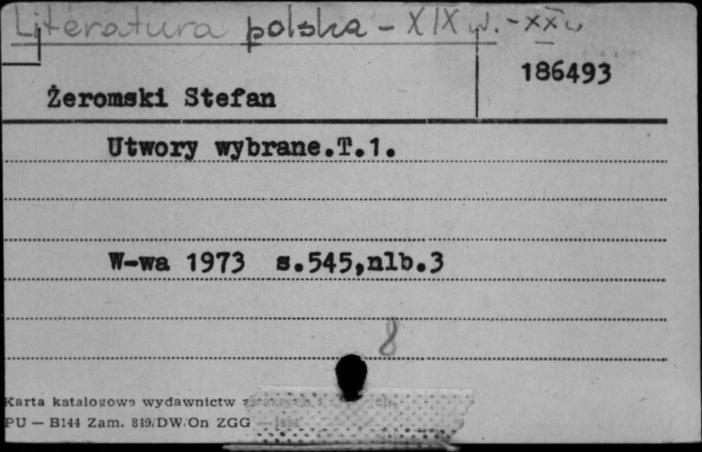 Literatura polska - XIX w. - XX w
186493
Żeromski Stefan
Utwory wybrane.T.1.
W-wa 1973 s.545,nlb.3
8
Karta katalogowa wydawnictw
PU — B144 Zam. 819/DW/On ZGG —